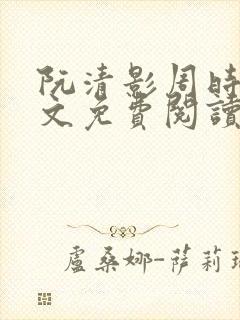 阮清影周時
文免費閱讀
盧桑娜-薩莉瑞